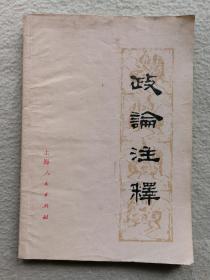 政論注釋
上海人民出版社